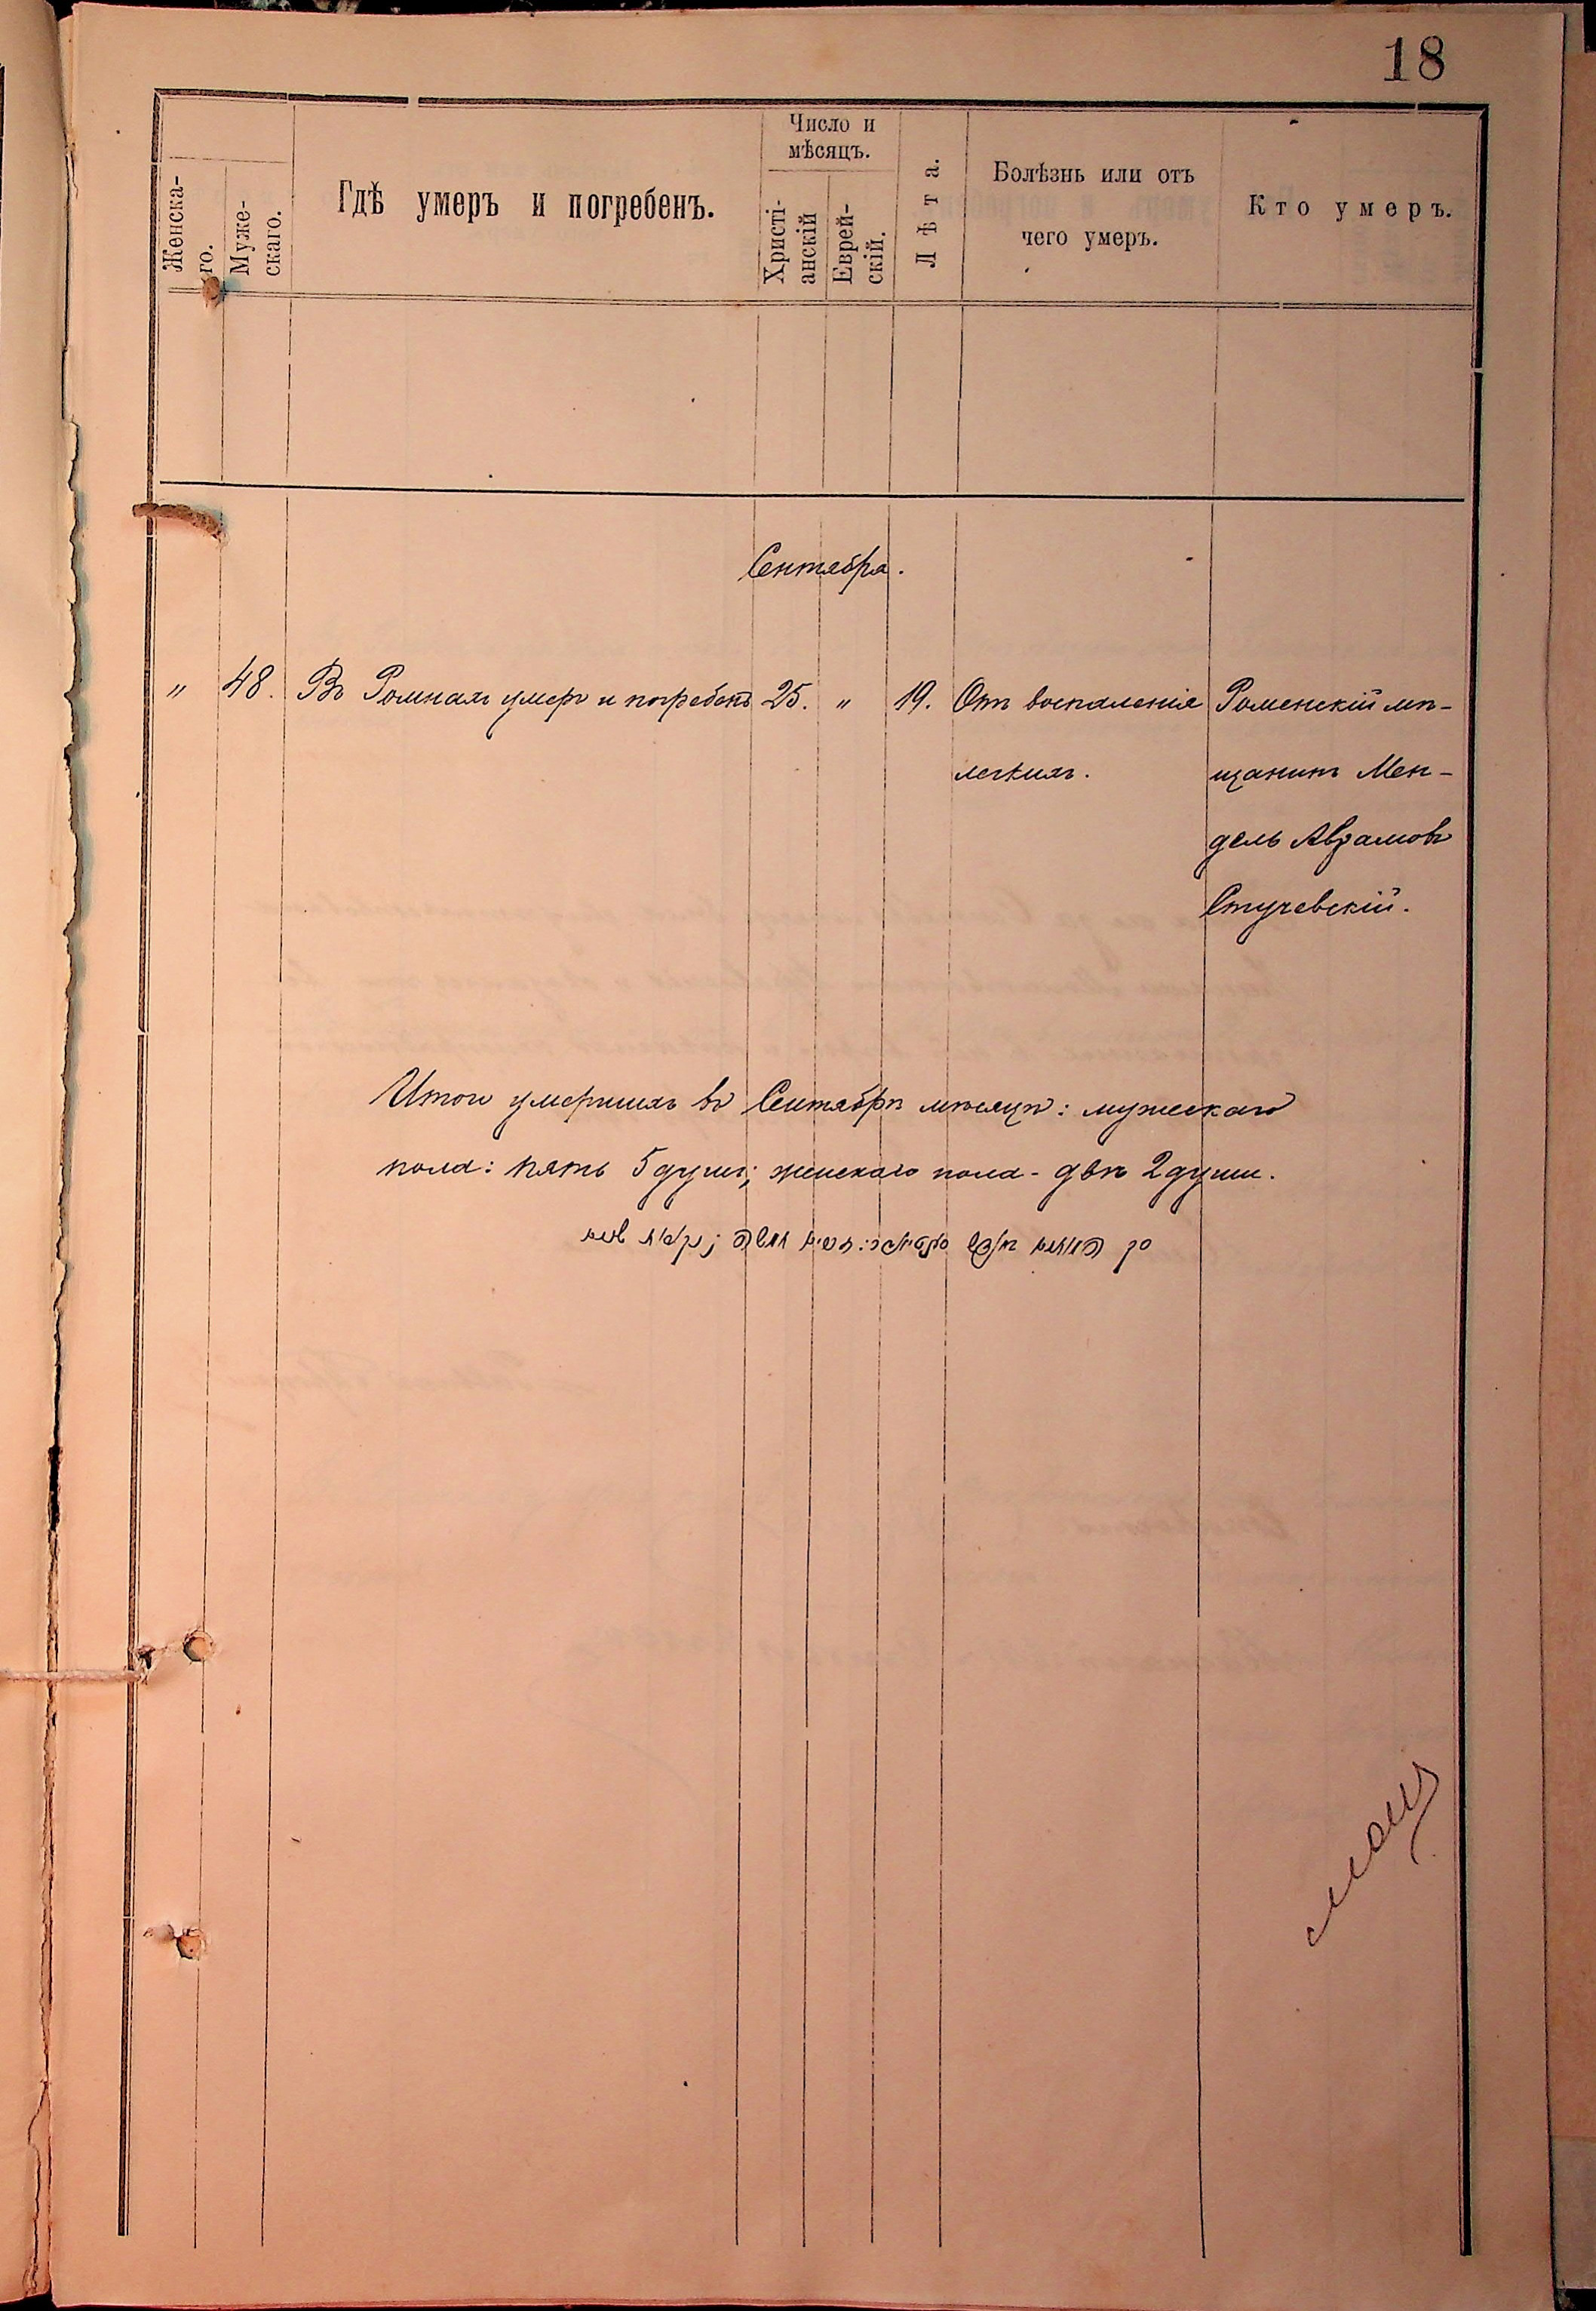 18
Женска-
го.
Муже-
скаго.
Гдѣ умеръ и погребенъ.
Число и
мѣсяцъ.
Христі-
анскій
Еврей-
скій.
Лѣта.
Болѣзнь или отъ
чего умеръ.
Кто умеръ.
Сентября.
" 48. Въ Ромнахъ умеръ и погребенъ 25. " 19. Отъ воспаленія Роменскій мѣ-
легкихъ. щанинъ Мен-
дель Аврамовъ
Стучевскій.
Итого умершихъ въ Сентябрѣ мѣсяцѣ: мужескаго
пола: пять 5 душъ; женскаго пола - двѣ 2 души.